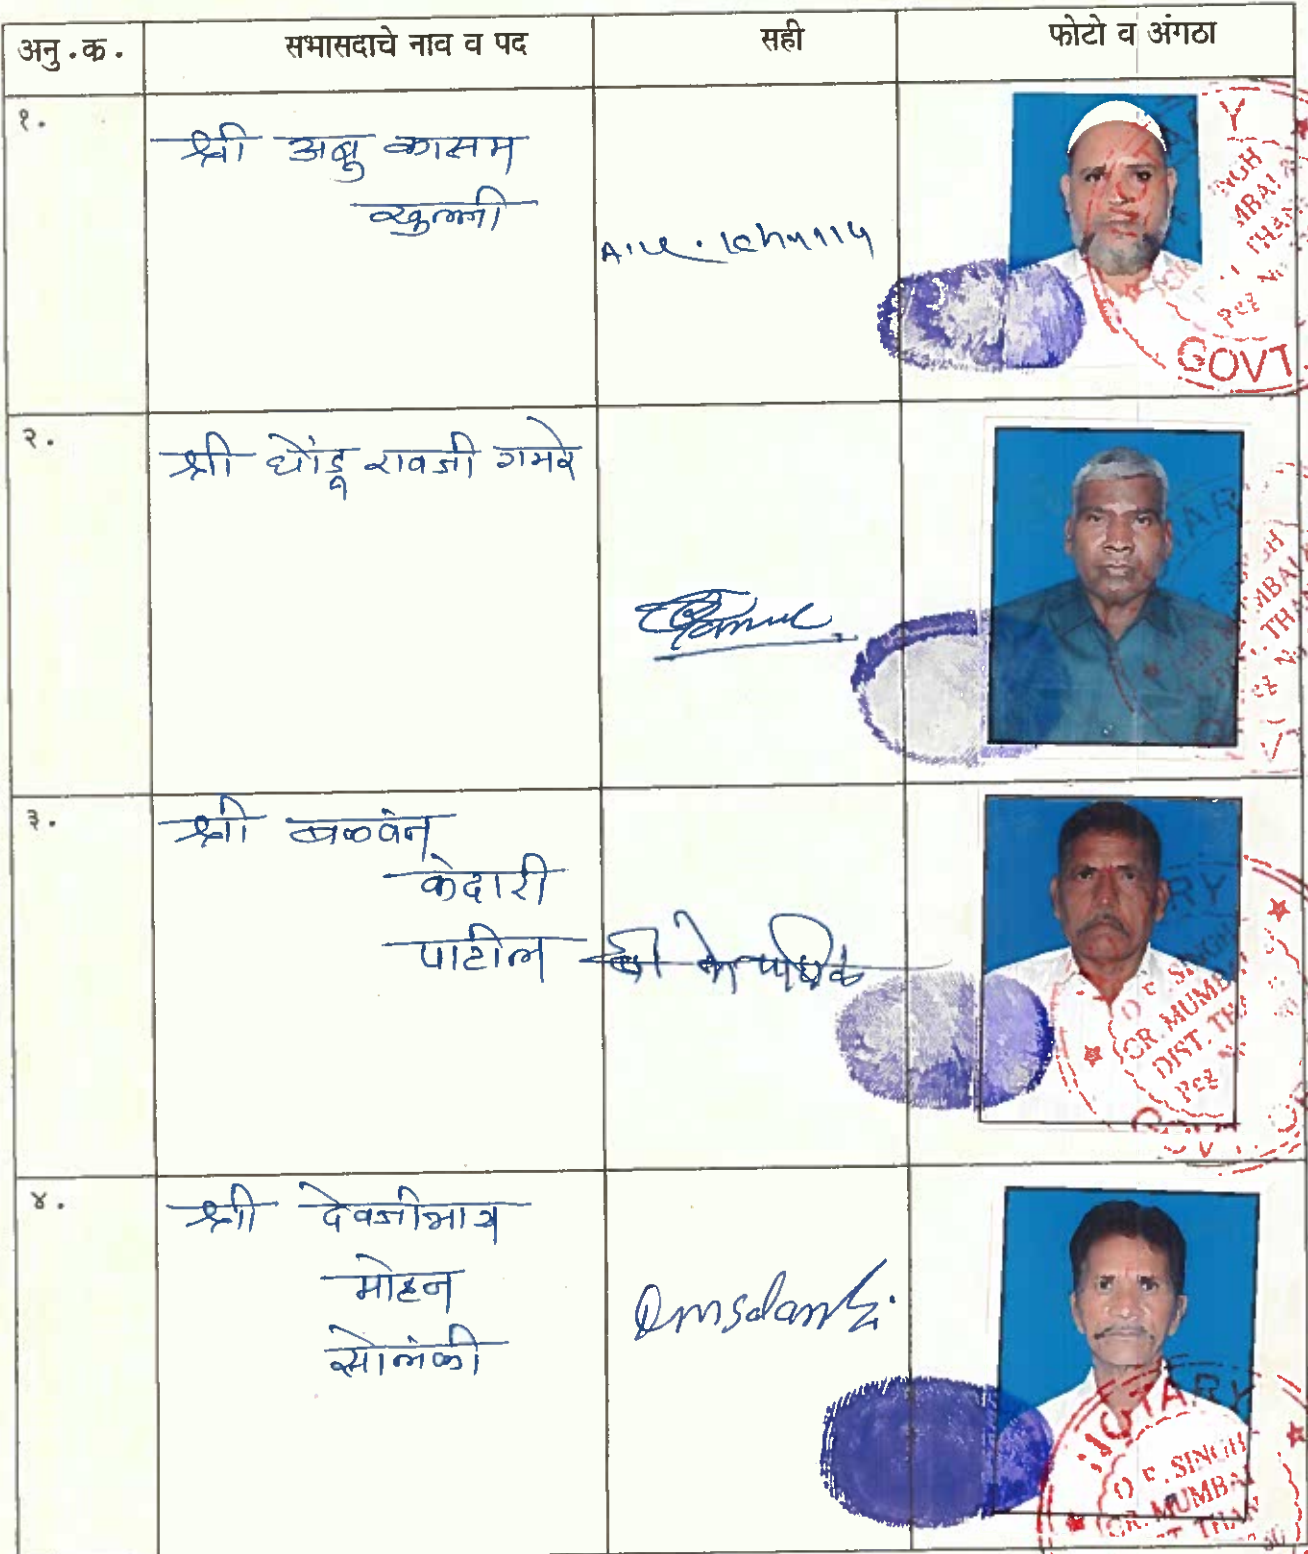 अनु.क्र. सभासदाचे नाव व पद सही फोटो व अंगठा
१.
श्री अबु कासम
खुल्ली
A.K. Khully
GOVT.
२.
श्री धोंडू रावजी गमरे
३.
श्री बळवंत
केदारी
पाटील
SINGH
GR. MUMBAI
DIST. THA
४.
श्री देवजीभाय
मोहन
सोलंकी
Dmsolanki
NOTARY
SINGH
GR. MUMBAI